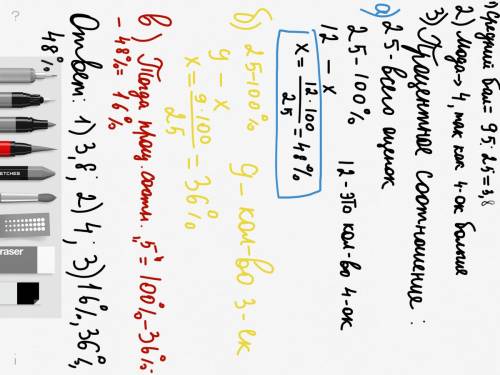 Средний бал = 95 : 25 = 3,8
2) Мода → 4, так как 4-ок больше
3) Процентное соотношение :
а) 25 - всего оценок
25 - 100% 12 - это кол-во 4-ок
12 - x
x = 12·100/25 = 48%
б) 25-100% 9 - кол-во 3-ек
9 - x
x = 9·100/25 = 36%
в) Тогда проц. соотн. „5" = 100% - 36% -
- 48% = 16%
Ответ: 1) 3,8 ; 2) 4 ; 3) 16%, 36%,
48%
ETCHES
eraser